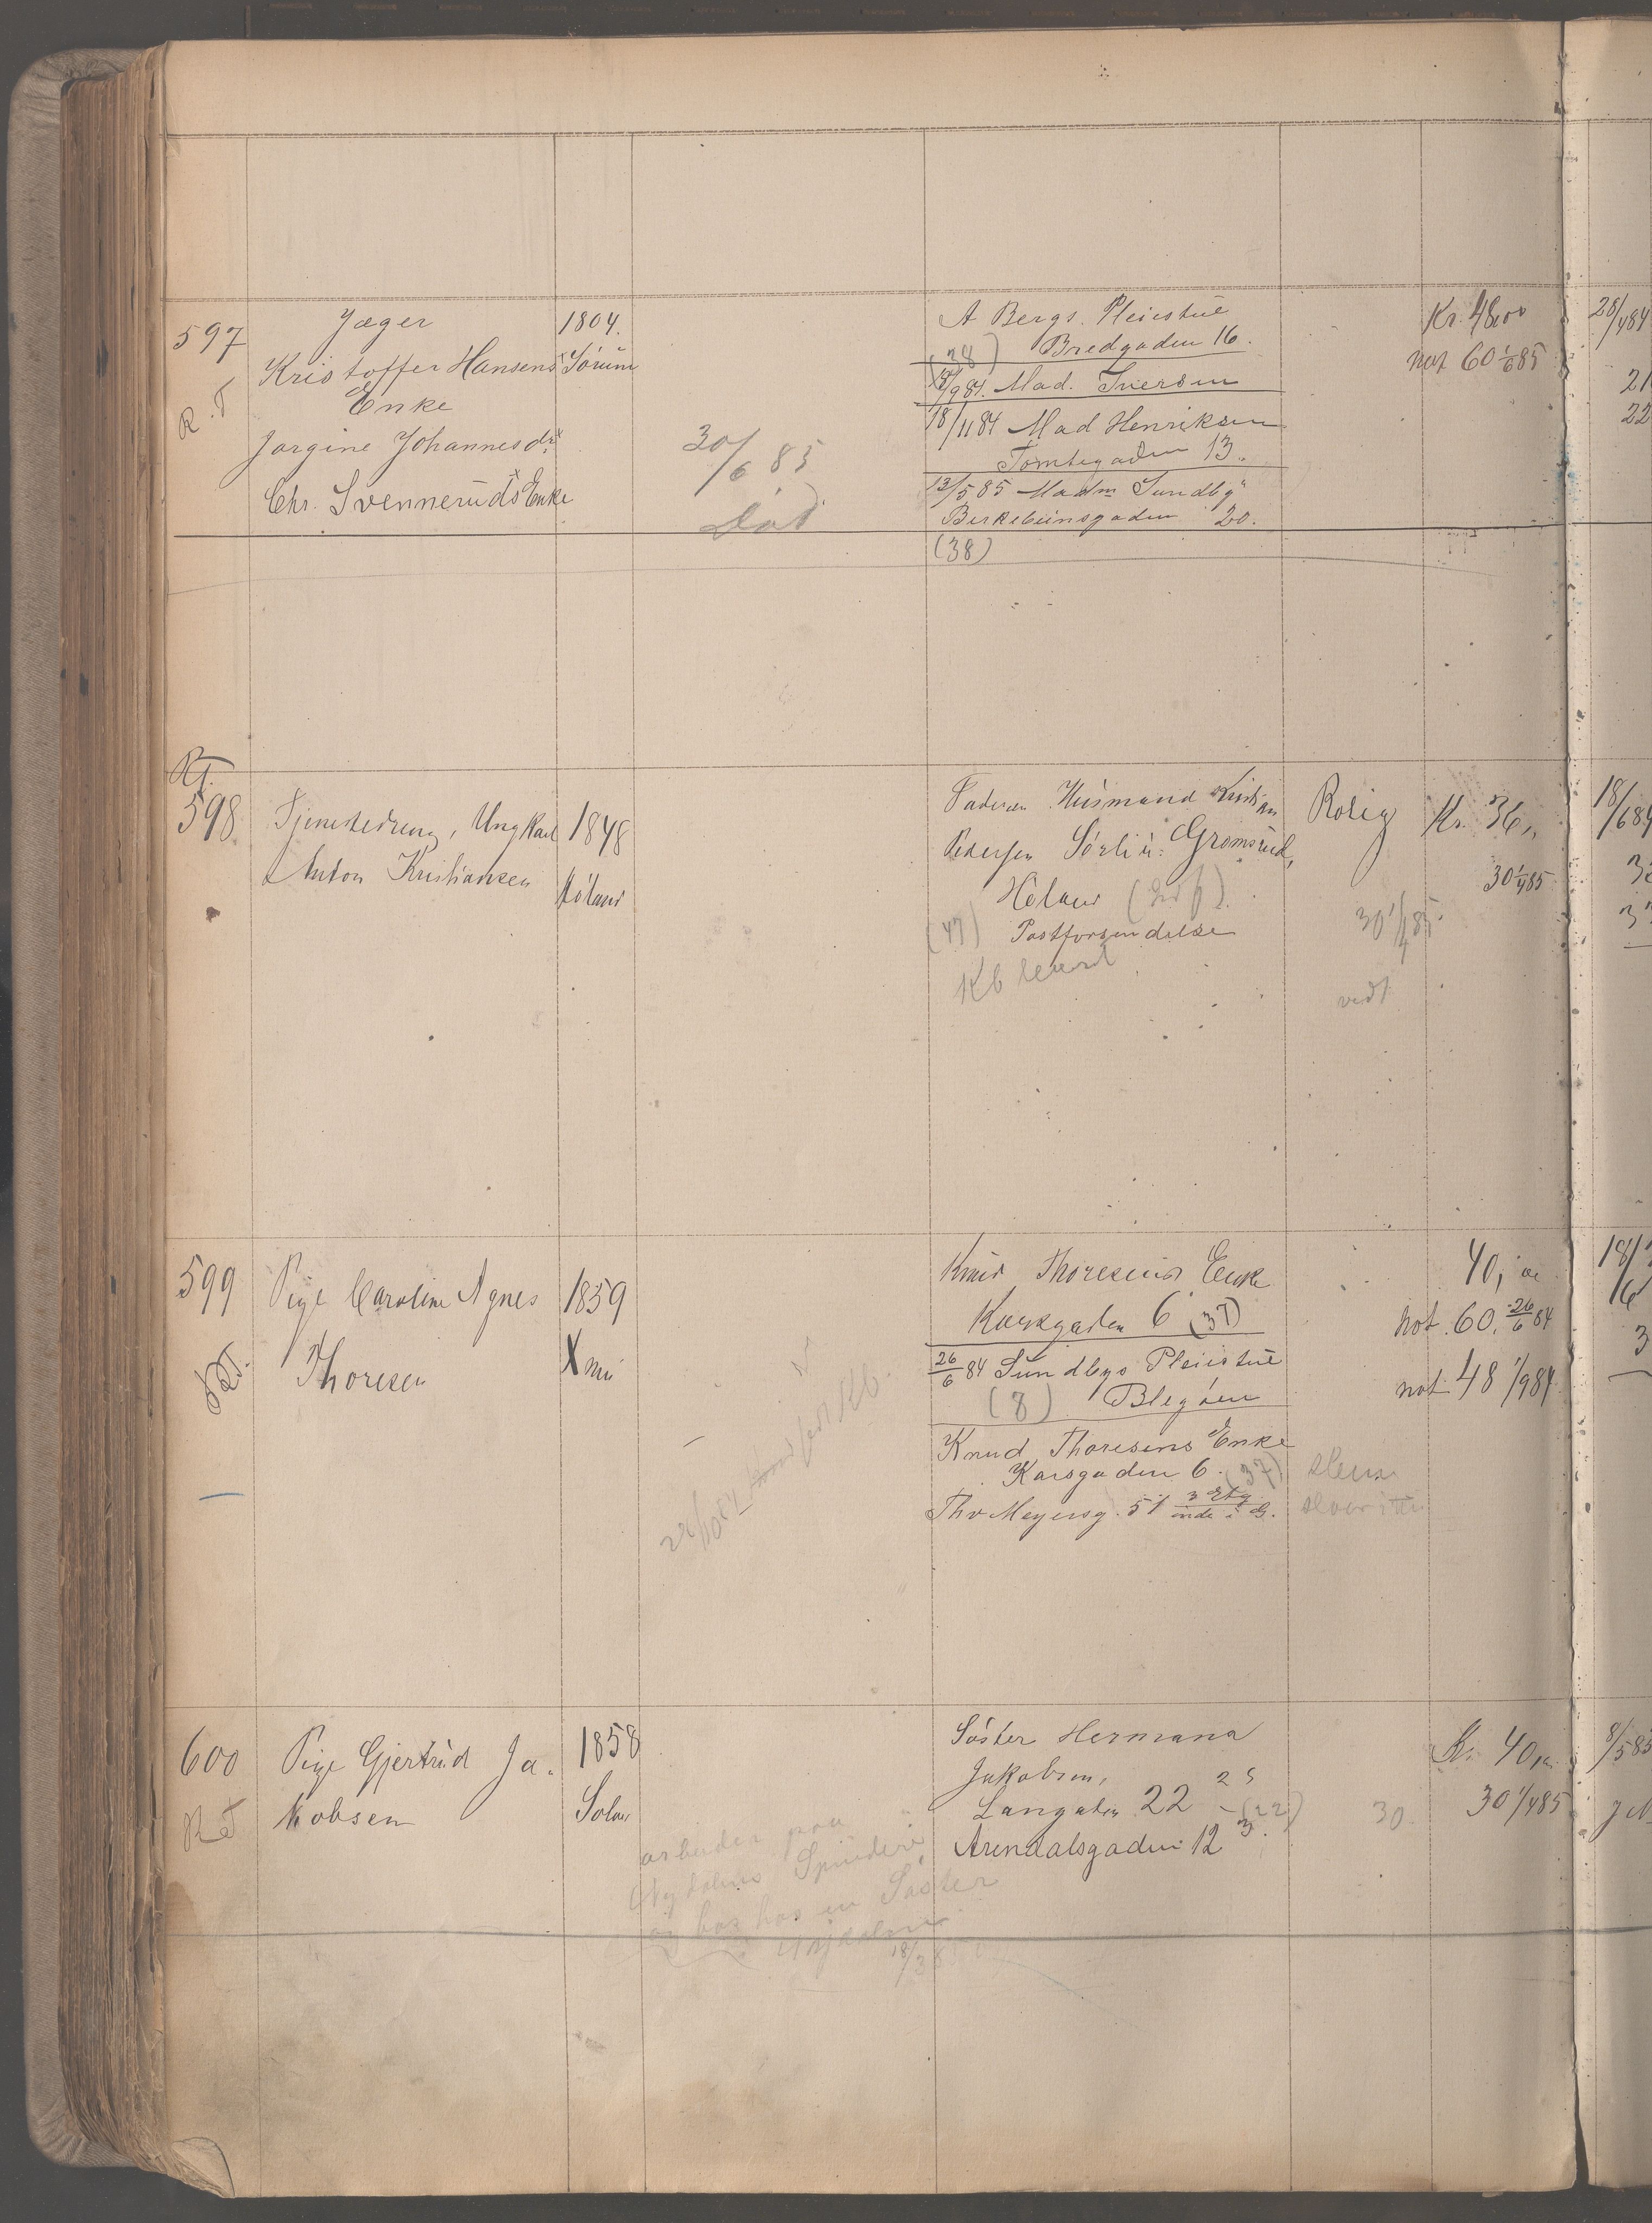 597
R.T
Jæger
Kristoffer Hansens
Enke
Jørgine Johannesdr
Chr. Svennerüds Enke
1804.
Sørüm
30/6 85
död
A Bergs Pleiestüe
(28) Bredgaden 16.
/984. Mad. Iversen
18/1184 Mad Henriksen
Tomtegaden 13.
13/5 85 Madm Sundby
Birkebeinsgaden 20.
(38)
Kr. 48,00
not 60 1/6 85
28/484
21
22
RT.
598
Tjenestedreng, Ungkarl
Anton Kristiansen
1848
Høland
Faderen Hüsmand Kristian
Pedersen Sörli ü. Gromsrüd,
Höland
(47) Postforsendelse
Kb
Rolig
30 1/4 85.
Kr. 36,
30 1/4 85
18/684
599
RT.
Pige Caroline Agnes
Thoresen
1859
Xania
Knüd Thoresens Enke
Korsgaden 6 (37)
26/6 84 Sundbys Pleiestüe
(8) Blegöen
Knud Thoresens Enke
Korsgaden 6. (37)
Thv Meyersg. 51 3 Etg
inde i G.
40,
not. 60. 26/6 84
not 48 1/984
18/
16
3
600
RT
Pige Gjertrüd Ja-
kobsen
1858
Solør
arbeider paa
Nydalens Spinderi
og bor hos en Søster
18/3 85
Søster Hermana
Jakobsen,
Langgaden 22 (22)
Arendalsgaden 12
30.
Kr. 40,
30 1/485
8/585